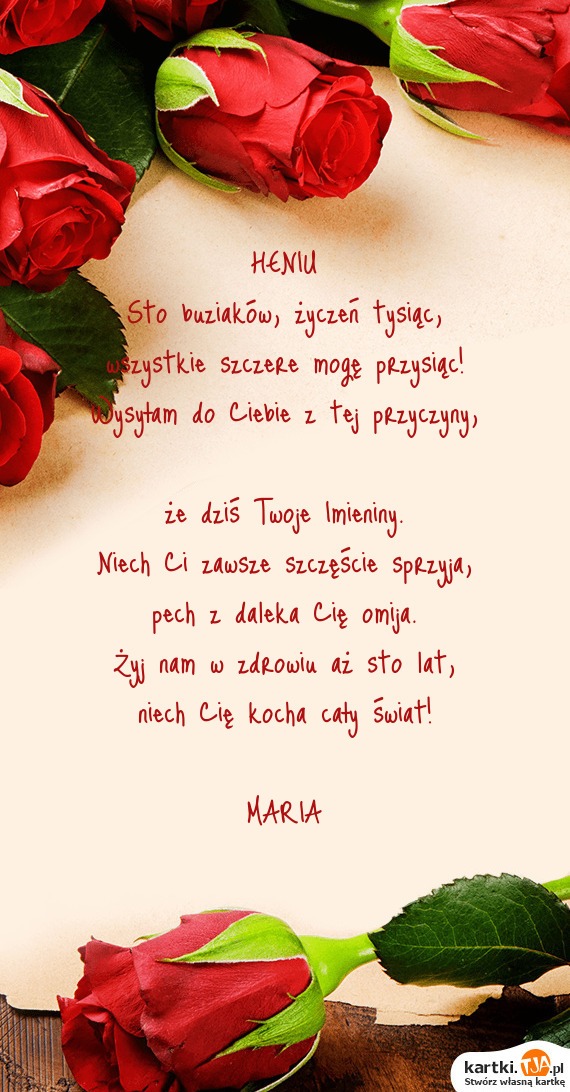 HENIU
Sto buziaków, życzeń tysiąc,
wszystkie szczere mogę przysiąc!
Wysyłam do Ciebie z tej przyczyny,
że dziś Twoje Imieniny.
Niech Ci zawsze szczęście sprzyja,
pech z daleka Cię omija.
Żyj nam w zdrowiu aż sto lat,
niech Cię kocha cały świat!
MARIA
kartki.TJA.pl
Stwórz własną kartkę